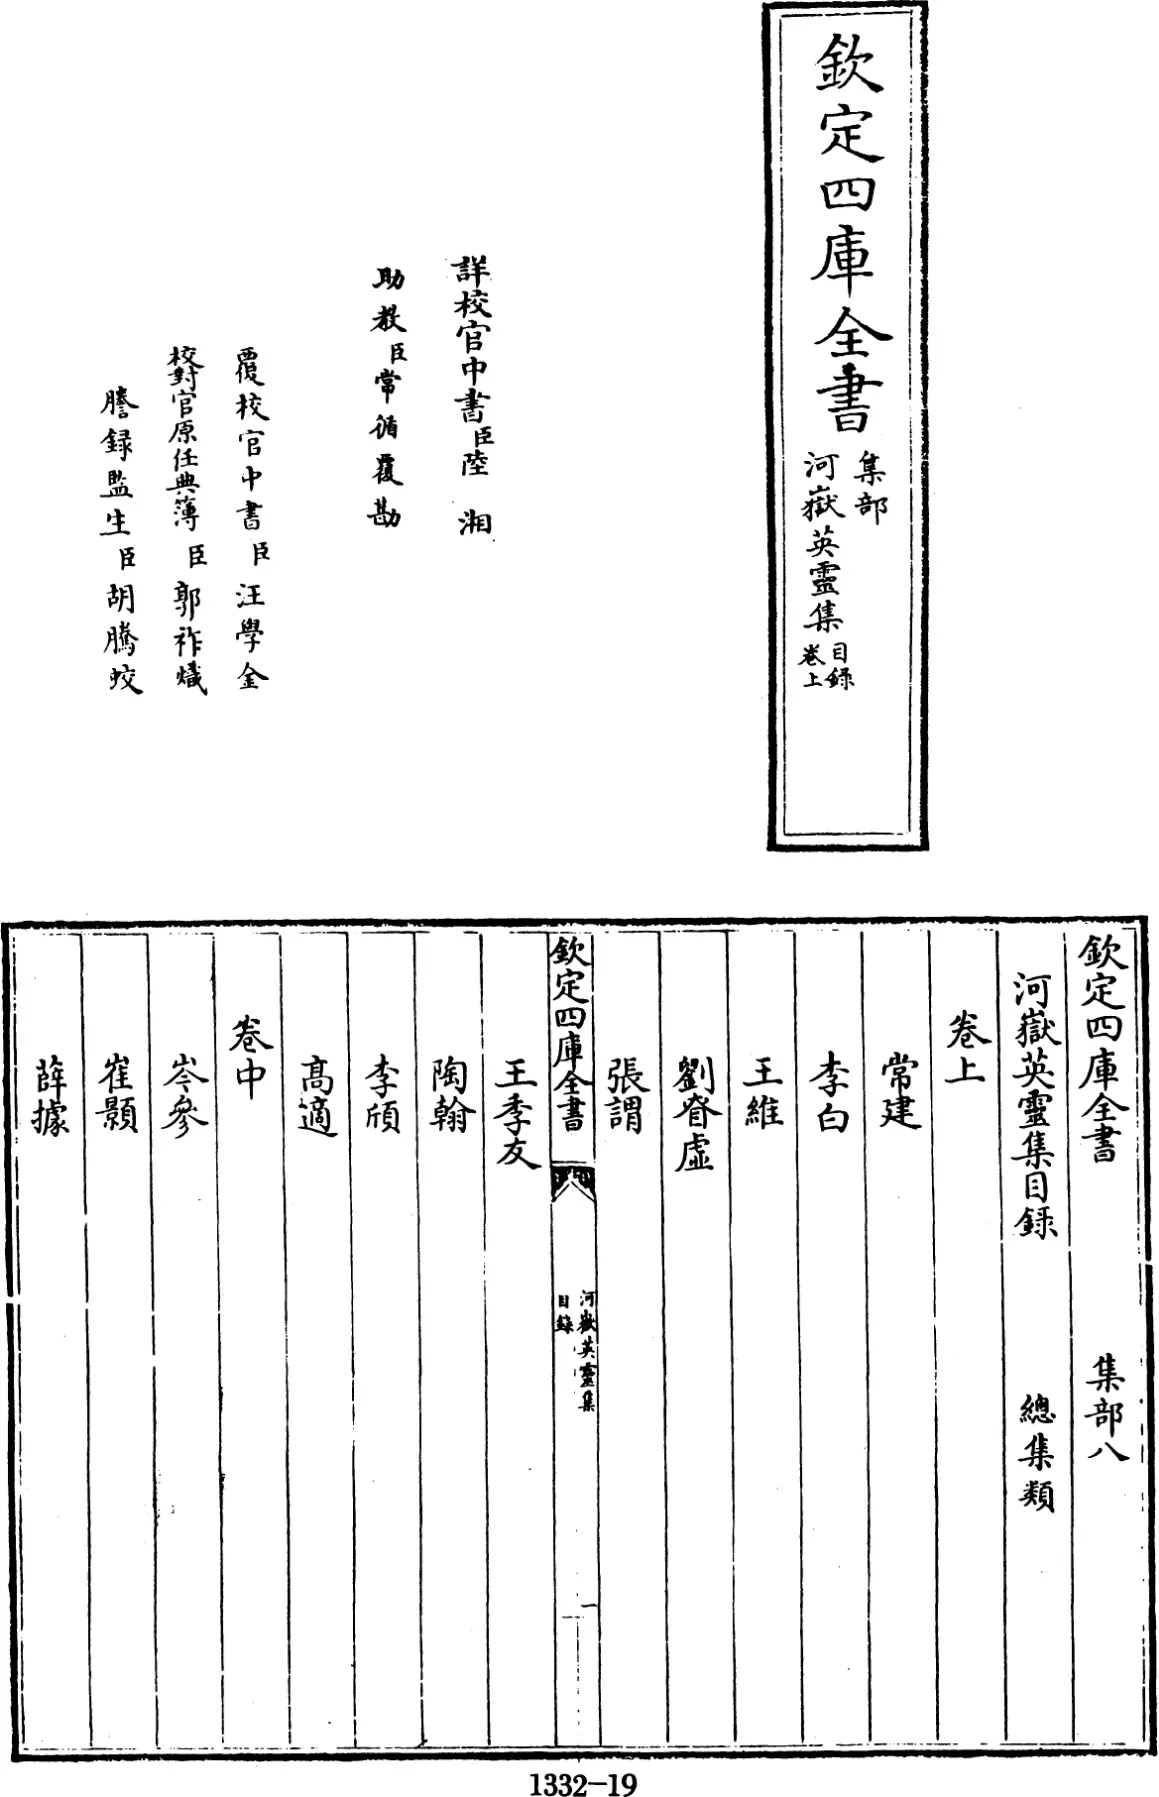 欽定四庫全書
集部
河嶽英靈集
目録
卷上
詳校官中書臣陸湘
助教臣常循覆勘
覆校官中書臣汪學金
校對官原任典簿臣郭祚熾
謄録監生臣胡騰蛟
欽定四庫全書 集部八
河嶽英靈集目録 總集類
卷上
常建
李白
王維
劉眘虛
張謂
欽定四庫全書
河嶽英靈集
目録
一
王季友
陶翰
李頎
高適
卷中
岑參
崔顥
薛據
1332-19